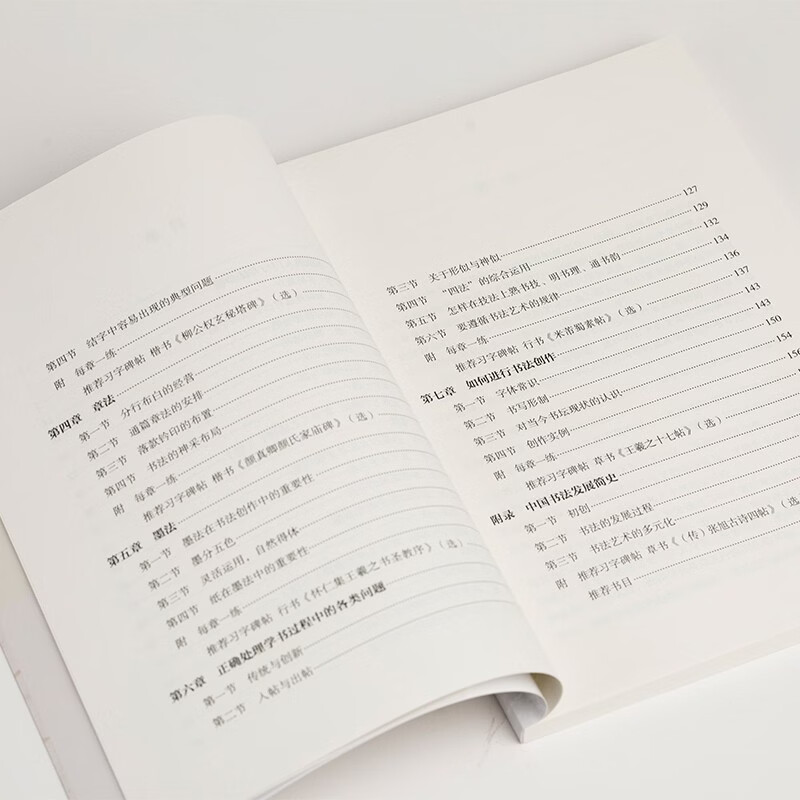 第四节 结字中容易出现的典型问题
附 每章一练
推荐习字碑帖 楷书《柳公权玄秘塔碑》(选)
第四章 章法
第一节 分行布白的经营
第二节 通篇章法的安排
第三节 落款钤印的布置
第四节 书法的神采布局
附 每章一练
推荐习字碑帖 楷书《颜真卿颜氏家庙碑》(选)
第五章 墨法
第一节 墨法在书法创作中的重要性
第二节 墨分五色
第三节 灵活运用,自然得体
第四节 纸在墨法中的重要性
附 每章一练
推荐习字碑帖 行书《怀仁集王羲之书圣教序》(选)
第六章 正确处理学书过程中的各类问题
第一节 传统与创新
第二节 入帖与出帖
第三节 关于形似与神似 127
第四节 “四法”的综合运用 129
第五节 怎样在技法上熟书技、明书理、通书韵 132
第六节 要遵循书法艺术的规律 134
附 每章一练 136
推荐习字碑帖 行书《米芾蜀素帖》(选) 137
第七章 如何进行书法创作 143
第一节 字体常识 143
第二节 书写形制 150
第三节 对当今书坛现状的认识 154
第四节 创作实例 156
附 每章一练
推荐习字碑帖 草书《王羲之十七帖》(选)
附录 中国书法发展简史
第一节 初创
第二节 书法的发展过程
第三节 书法艺术的多元化
附 推荐习字碑帖 草书《(传)张旭古诗四帖》(选)
推荐书目